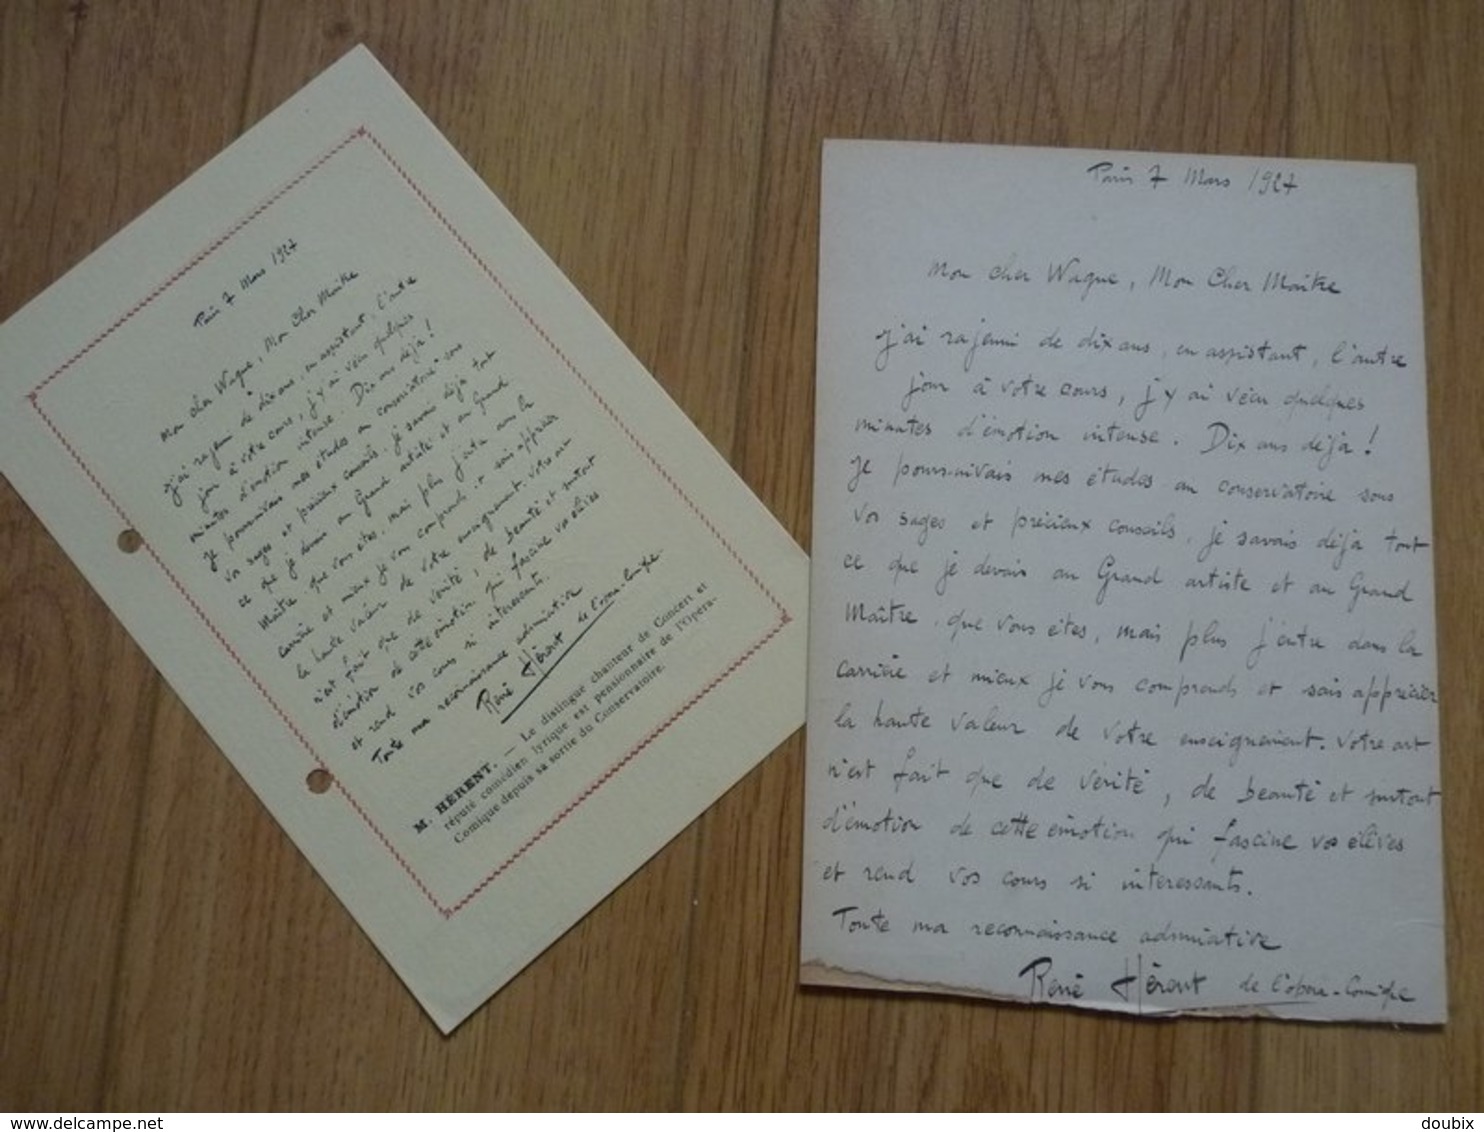 Paris 7 Mars 1927
Mon cher Wague, Mon Cher Maître
j'ai rajeuni de dix ans, en assistant, l'autre
jour à votre cours, j'y ai vécu quelques
minutes d'émotion intense. Dix ans déjà!
Je poursuivais mes études au conservatoire sous
vos sages et précieux conseils, je savais déjà tout
ce que je devais au Grand artiste et au Grand
Maître, que vous êtes, mais plus j'entre dans la
carrière et mieux je vous comprends et sais apprécier
la haute valeur de votre enseignement. Votre art
n'est fait que de vérité, de beauté et surtout
d'émotion de cette émotion qui fascine vos élèves
et rend vos cours si intéressants.
Toute ma reconnaissance admirative
René Hérent de l'opéra-Comique
M. HÉRENT. — Le distingué chanteur de Concert et
réputé comédien lyrique est pensionnaire de l'Opéra-
Comique depuis sa sortie du Conservatoire.
Paris 7 Mars 1927
Mon cher Wague, Mon Cher Maître
j'ai rajeuni de dix ans, en assistant, l'autre
jour à votre cours, j'y ai vécu quelques
minutes d'émotion intense. Dix ans déjà!
Je poursuivais mes études au conservatoire sous
vos sages et précieux conseils, je savais déjà tout
ce que je devais au Grand artiste et au Grand
Maître, que vous êtes, mais plus j'entre dans la
carrière et mieux je vous comprends et sais apprécier
la haute valeur de votre enseignement. Votre art
n'est fait que de vérité, de beauté et surtout
d'émotion de cette émotion qui fascine vos élèves
et rend vos cours si intéressants.
Toute ma reconnaissance admirative
René Hérent de l'opéra-Comique
doubix